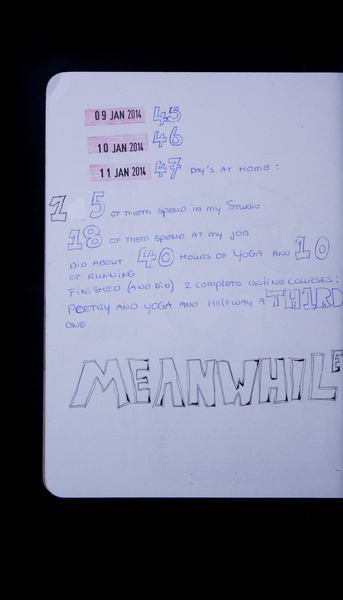 09 JAN 2014 45
10 JAN 2014 46
11 JAN 2014 47 DAY'S AT HOME:
15 OF THEM SPEND IN MY STUDIO
18 OF THEM SPEND AT MY JOB
DID ABOUT 40 HOURS OF YOGA AND 10
OF RUNNING
FINISHED (AND DID) 2 COMPLETE ONLINE COURSES:
POETRY AND YOGA AND HALFWAY A THIRD
ONE
MEANWHILE